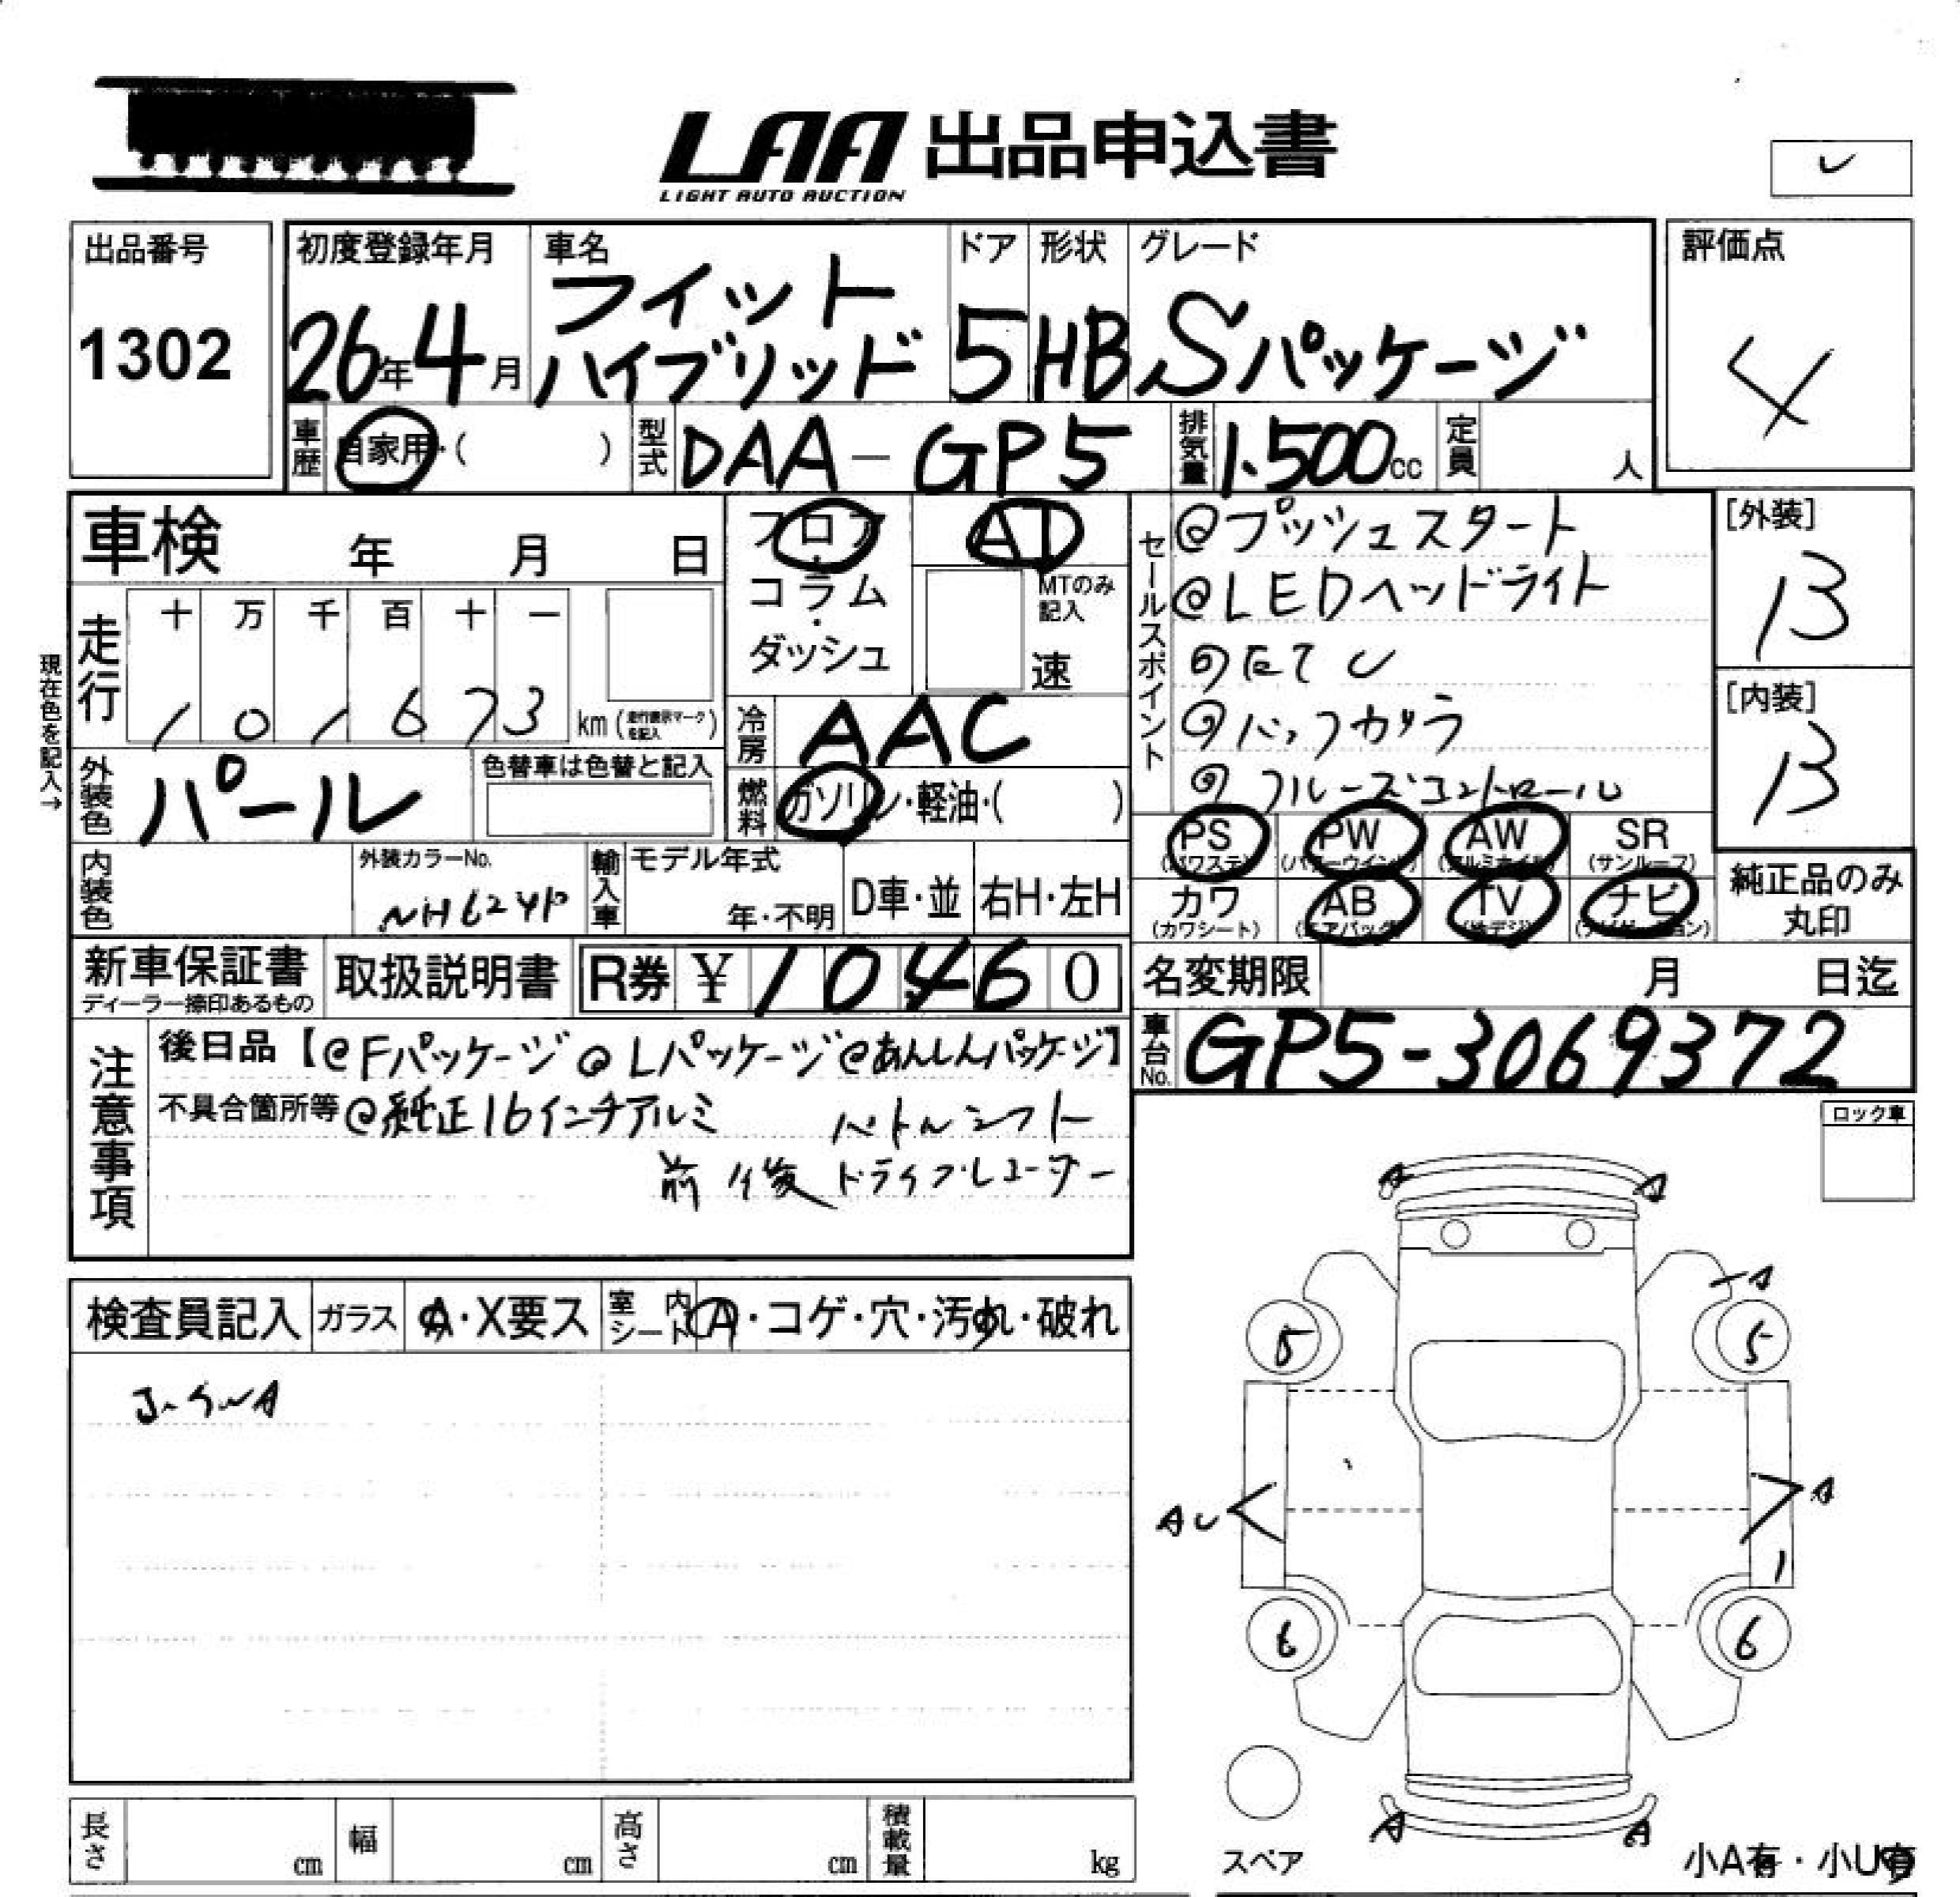 LAA 出品申込書
LIGHT AUTO AUCTION
出品番号
1302
初度登録年月
26年4月
車名
フィット
ハイブリッド
ドア
5
形状
HB
グレード
Sパッケージ
評価点
4
車歴 自家用・( )
型式 DAA-GP5
排気量 1.500cc
定員 人
車検 年 月 日
フロア・コラム・ダッシュ
AT
MTのみ記入
速
セールスポイント
@プッシュスタート
@LEDヘッドライト
@バックカメラ
@クルーズコントロール
[外装]
B
[内装]
B
現在色を記入→
走行
十 万 千 百 十 一
1 0 1 6 7 3 km
冷房 AAC
外装色 パール
色替車は色替と記入
燃料 ガソリン・軽油・( )
PS (パワステ)
PW (パワーウインド)
AW (アルミホイル)
SR (サンルーフ)
カワ (カワシート)
AB (エアバッグ)
TV (地デジ)
ナビ (ナビゲーション)
純正品のみ
丸印
内装色
外装カラーNo.
NH624P
輸入車
モデル年式
年・不明
D車・並
右H・左H
新車保証書
ディーラー捺印あるもの
取扱説明書
R券 ¥ 10460
名変期限 月 日迄
車台No. GP5-3069372
注意事項
後日品【@Fパッケージ@Lパッケージ@あんしんパッケージ】
不具合箇所等@純正16インチアルミ パドルシフト
前後ドライブレコーダー
ロック車
検査員記入 ガラス A・X要ス 室内シート A・コゲ・穴・汚れ・破れ
A A
A
5 5
AU A
1
6 6
A A
スペア
小A有・小U有
長さ cm 幅 cm 高さ cm 積載量 kg